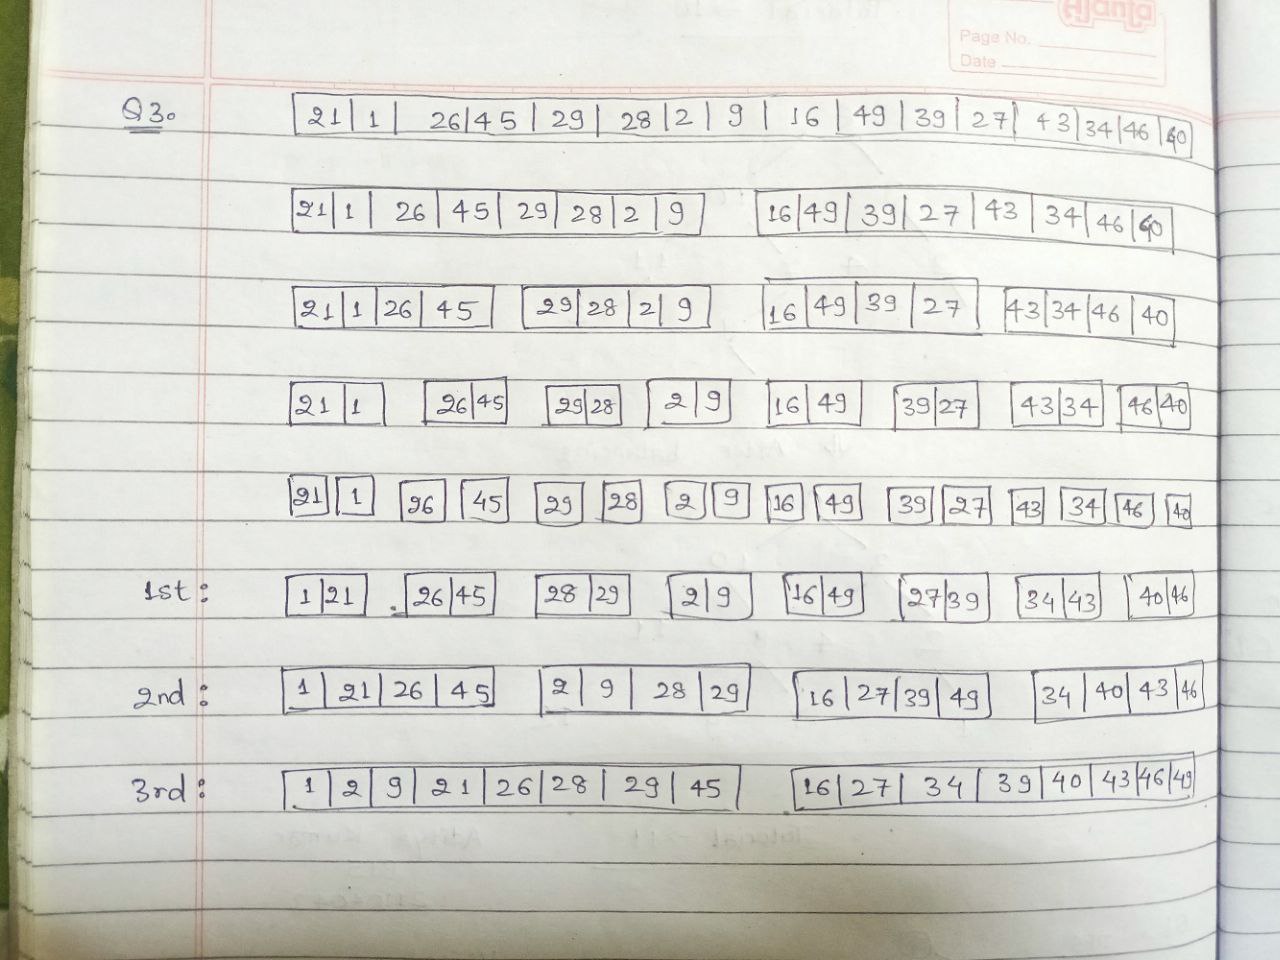 Ajanta
Page No.
Date
Q3. 21 1 26 45 29 28 2 9 16 49 39 27 43 34 46 40
21 1 26 45 29 28 2 9 16 49 39 27 43 34 46 40
21 1 26 45 29 28 2 9 16 49 39 27 43 34 46 40
21 1 26 45 29 28 2 9 16 49 39 27 43 34 46 40
21 1 26 45 29 28 2 9 16 49 39 27 43 34 46 40
1st: 1 21 26 45 28 29 2 9 16 49 27 39 34 43 40 46
2nd: 1 21 26 45 2 9 28 29 16 27 39 49 34 40 43 46
3rd: 1 2 9 21 26 28 29 45 16 27 34 39 40 43 46 49